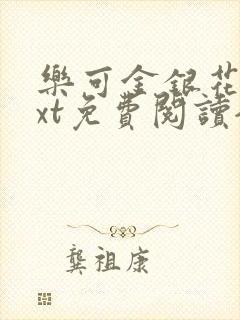 樂可金銀花
xt免費閱讀
龔祖康